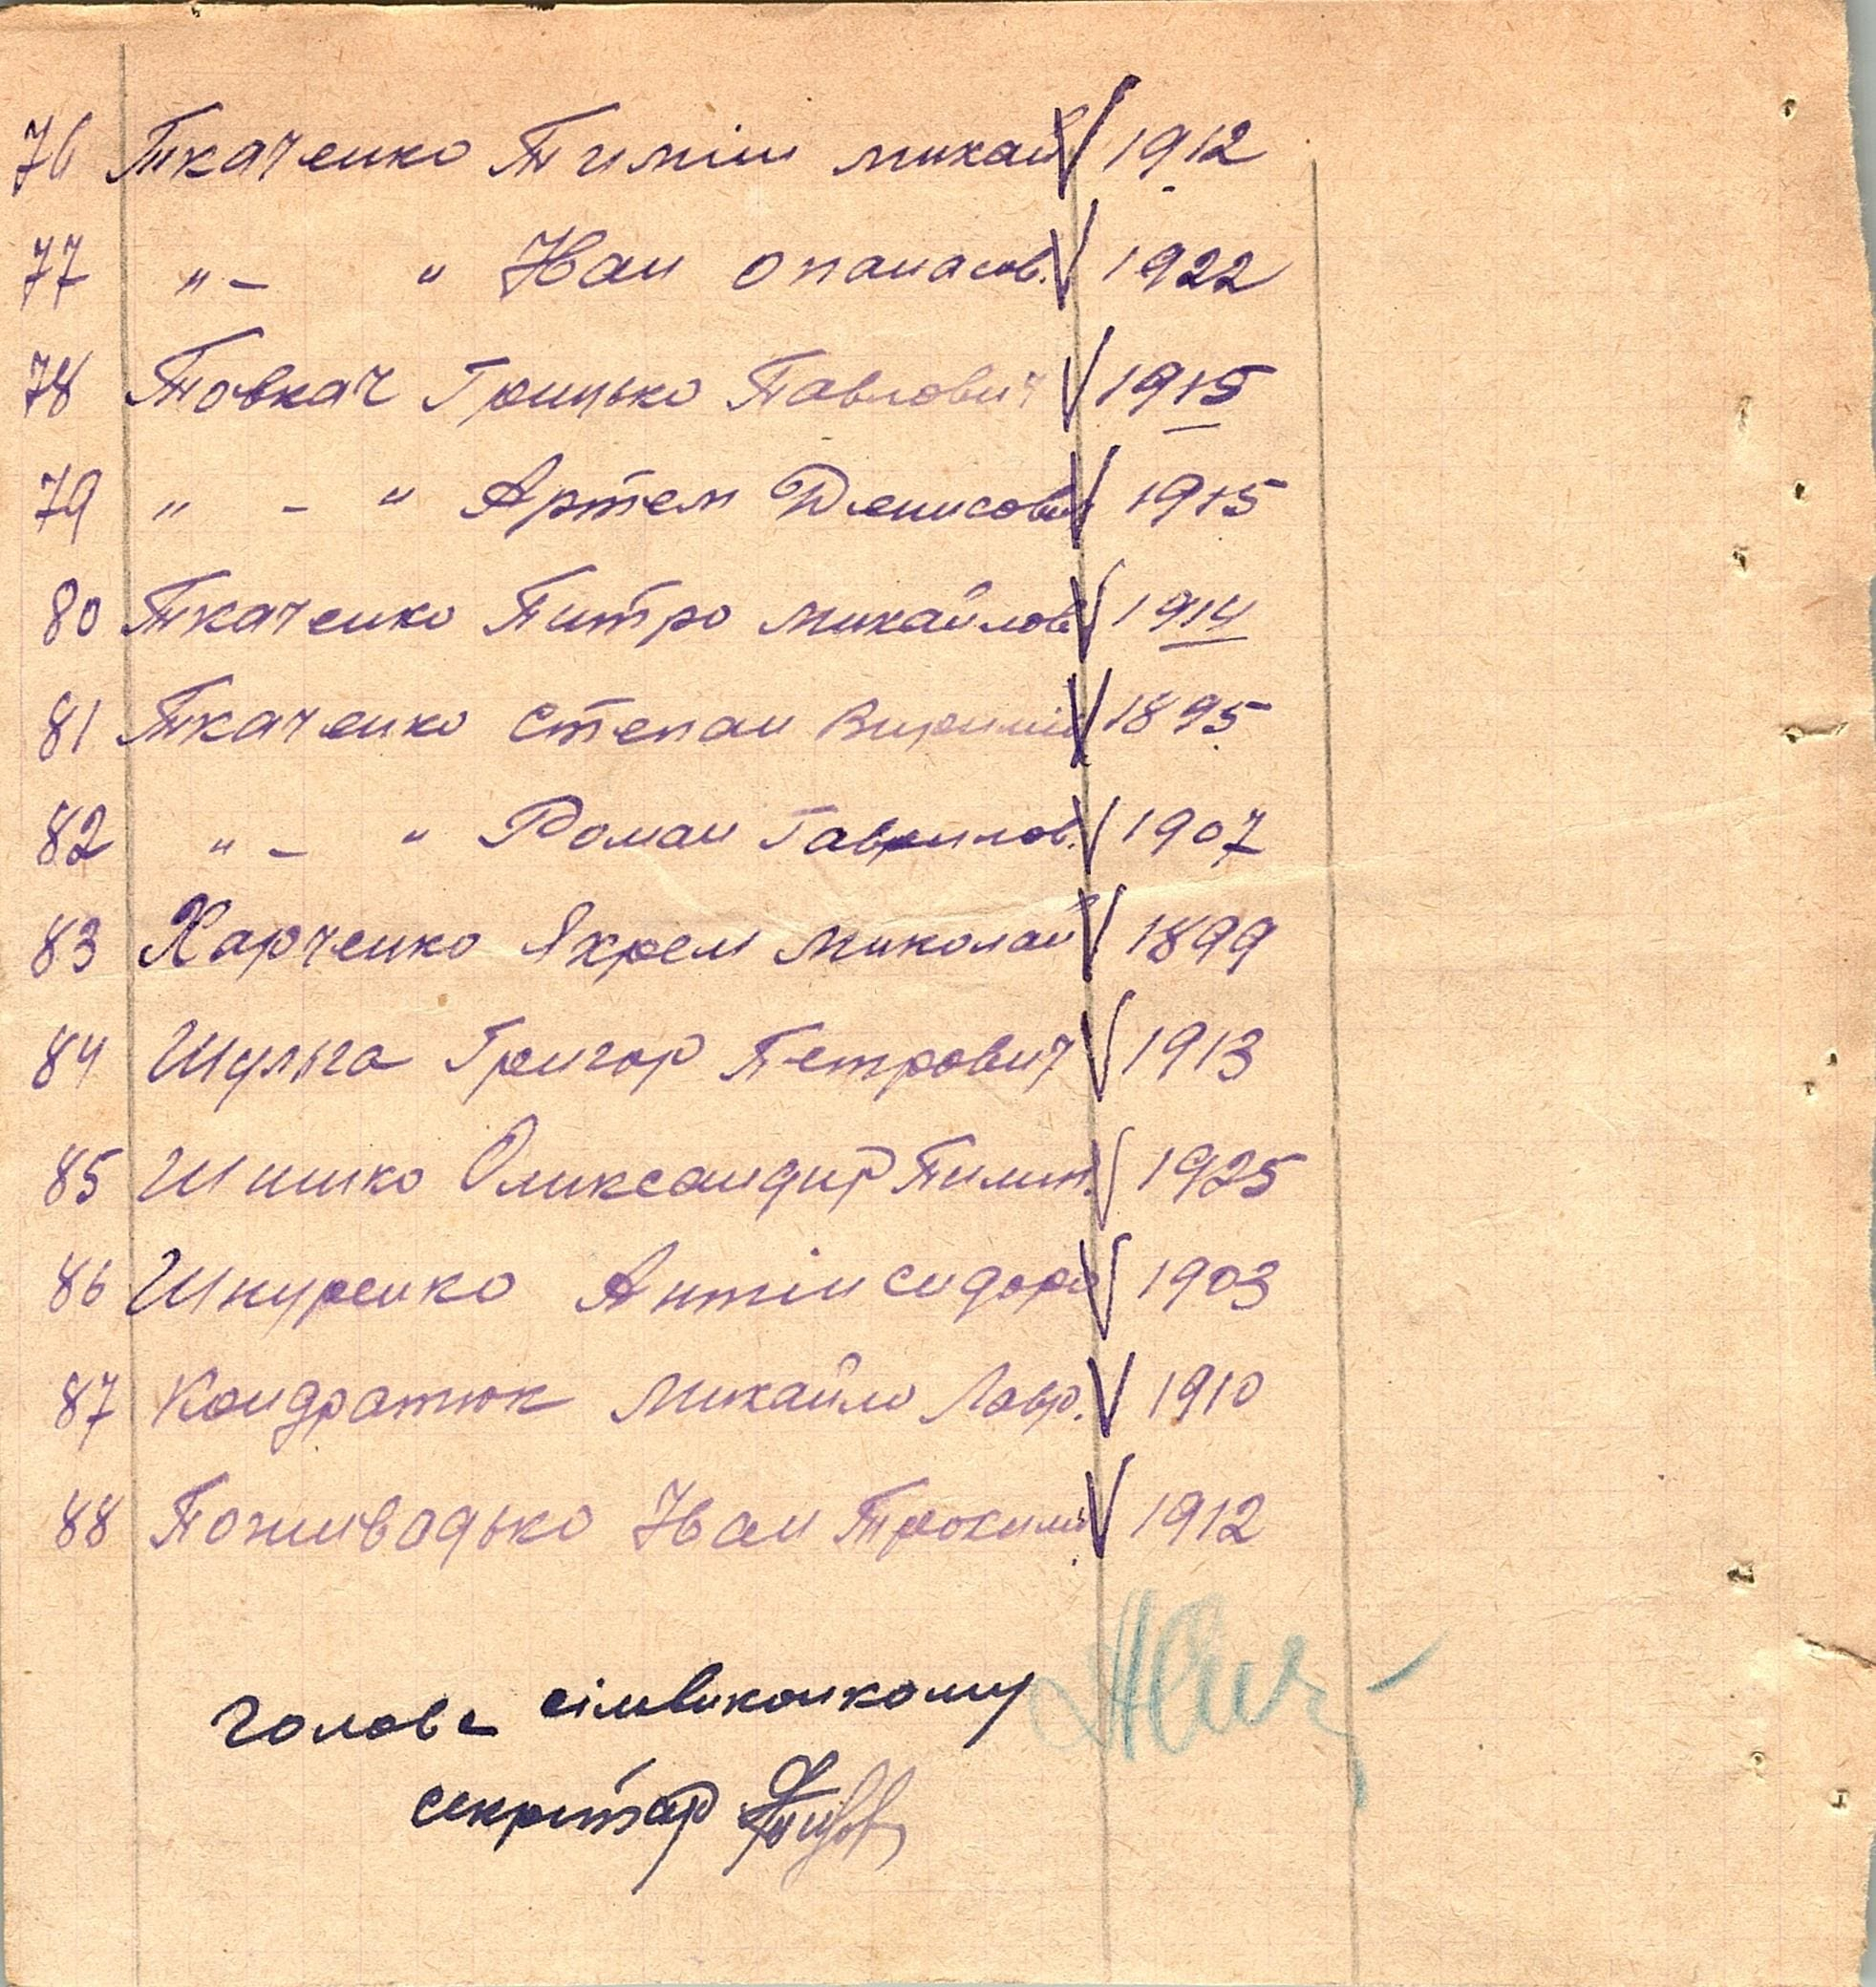 76 Ткаченко Тиміш михай 1912
77 „ – „ Іван опанасов. 1922
78 Товкач Грицько Павлович 1915
79 „ – „ Артем Денисович 1915
80 Ткаченко Питро михайлов 1914
81 Ткаченко Степан 1895
82 „ – „ Роман Гаврилов. 1907
83 Харченко Яхрем миколай 1899
84 Шульга Григор Петрович 1913
85 Шишко Олександир Пилип. 1925
86 Шкуренко Антін сидоро 1903
87 Кондратюк михайло Лавр. 1910
88 Поживодько Іван Трохим. 1912
голова сілвиконкому
секритар